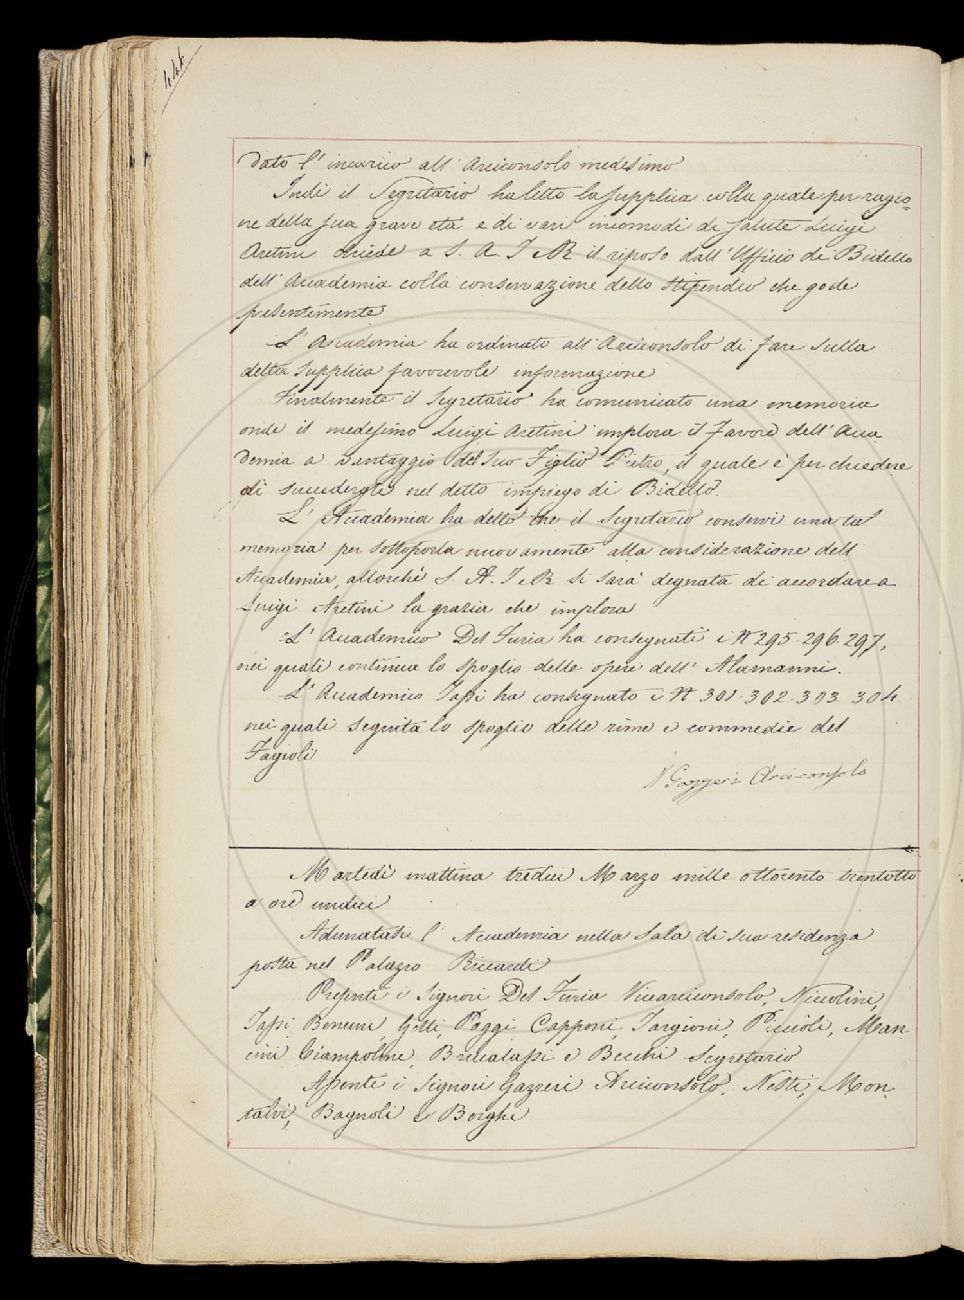 446
dato l'incarico all'Arciconsolo medesimo
Indi il Segretario ha letto la supplica colla quale per ragio=
ne della sua grave età e di vari incomodi di salute Luigi
Aretini chiede a S. A. I e R il riposo dall'Uffizio di Bidello
dell'Accademia colla conservazione dello stipendio che gode
presentemente
L'Accademia ha ordinato all'Arciconsolo di fare sulla
detta supplica favorevole informazione
Finalmente il Segretario ha comunicato una memoria
onde il medesimo Luigi Aretini implora il favore dell'Acca
demia a vantaggio del suo Figlio Pietro, il quale è per chiedere
di succedergli nel detto impiego di Bidello.
L'Accademia ha detto che il Segretario conservi una tal
memoria per sottoporla nuovamente alla considerazione dell
Accademia, allorché S. A. I e R si sarà degnata di accordare a
Luigi Aretini la grazia che implora
L'Accademico Del Furia ha consegnati i N 295. 296. 297,
nei quali continua lo spoglio delle opere dell'Alamanni.
L'Accademico Tassi ha consegnato i N 301. 302. 303. 304
nei quali seguita lo spoglio delle rime e commedie del
Fagioli
Gazzeri Arciconsolo
Martedì mattina tredici Marzo mille ottocento trentotto
a ore undici
Adunatasi l'Accademia nella sala di sua residenza
posta nel Palazzo Riccardi
Presenti i Signori Del Furia Vicearciconsolo, Niccolini,
Tassi, Bencini, Gelli, Poggi, Capponi, Targioni, Piccioli, Man-
cini, Ciampolini, Brucalassi e Becchi Segretario
Assenti i Signori Gazzeri Arciconsolo, Nesti, Mon-
talvi, Bagnoli e Borghi